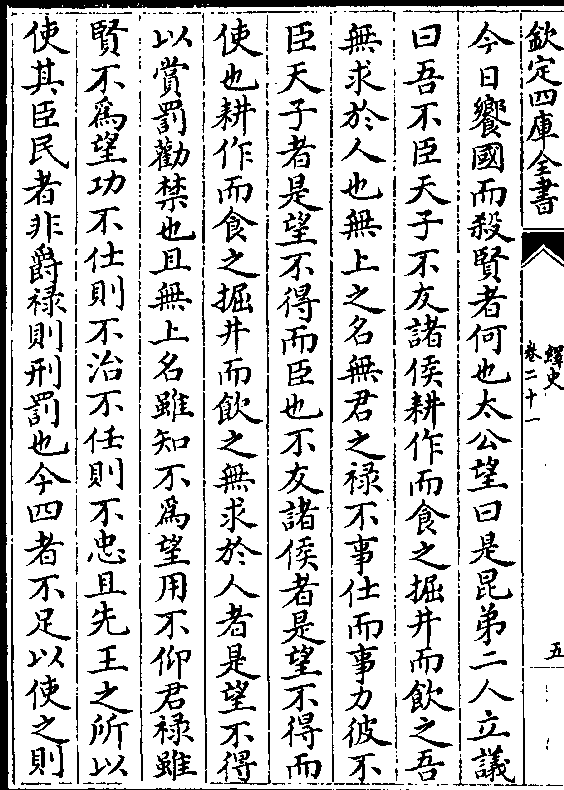 欽定四庫全書
繹史
卷二十一
五
今日饗國而殺賢者何也太公望曰是昆弟二人立議
曰吾不臣天子不友諸侯耕作而食之掘井而飲之吾
無求於人也無上之名無君之禄不事仕而事力彼不
臣天子者是望不得而臣也不友諸侯者是望不得而
使也耕作而食之掘井而飲之無求於人者是望不得
以賞罰勸禁也且無上名雖知不爲望用不仰君禄雖
賢不爲望功不仕則不治不任則不忠且先王之所以
使其臣民者非爵禄則刑罰也今四者不足以使之則